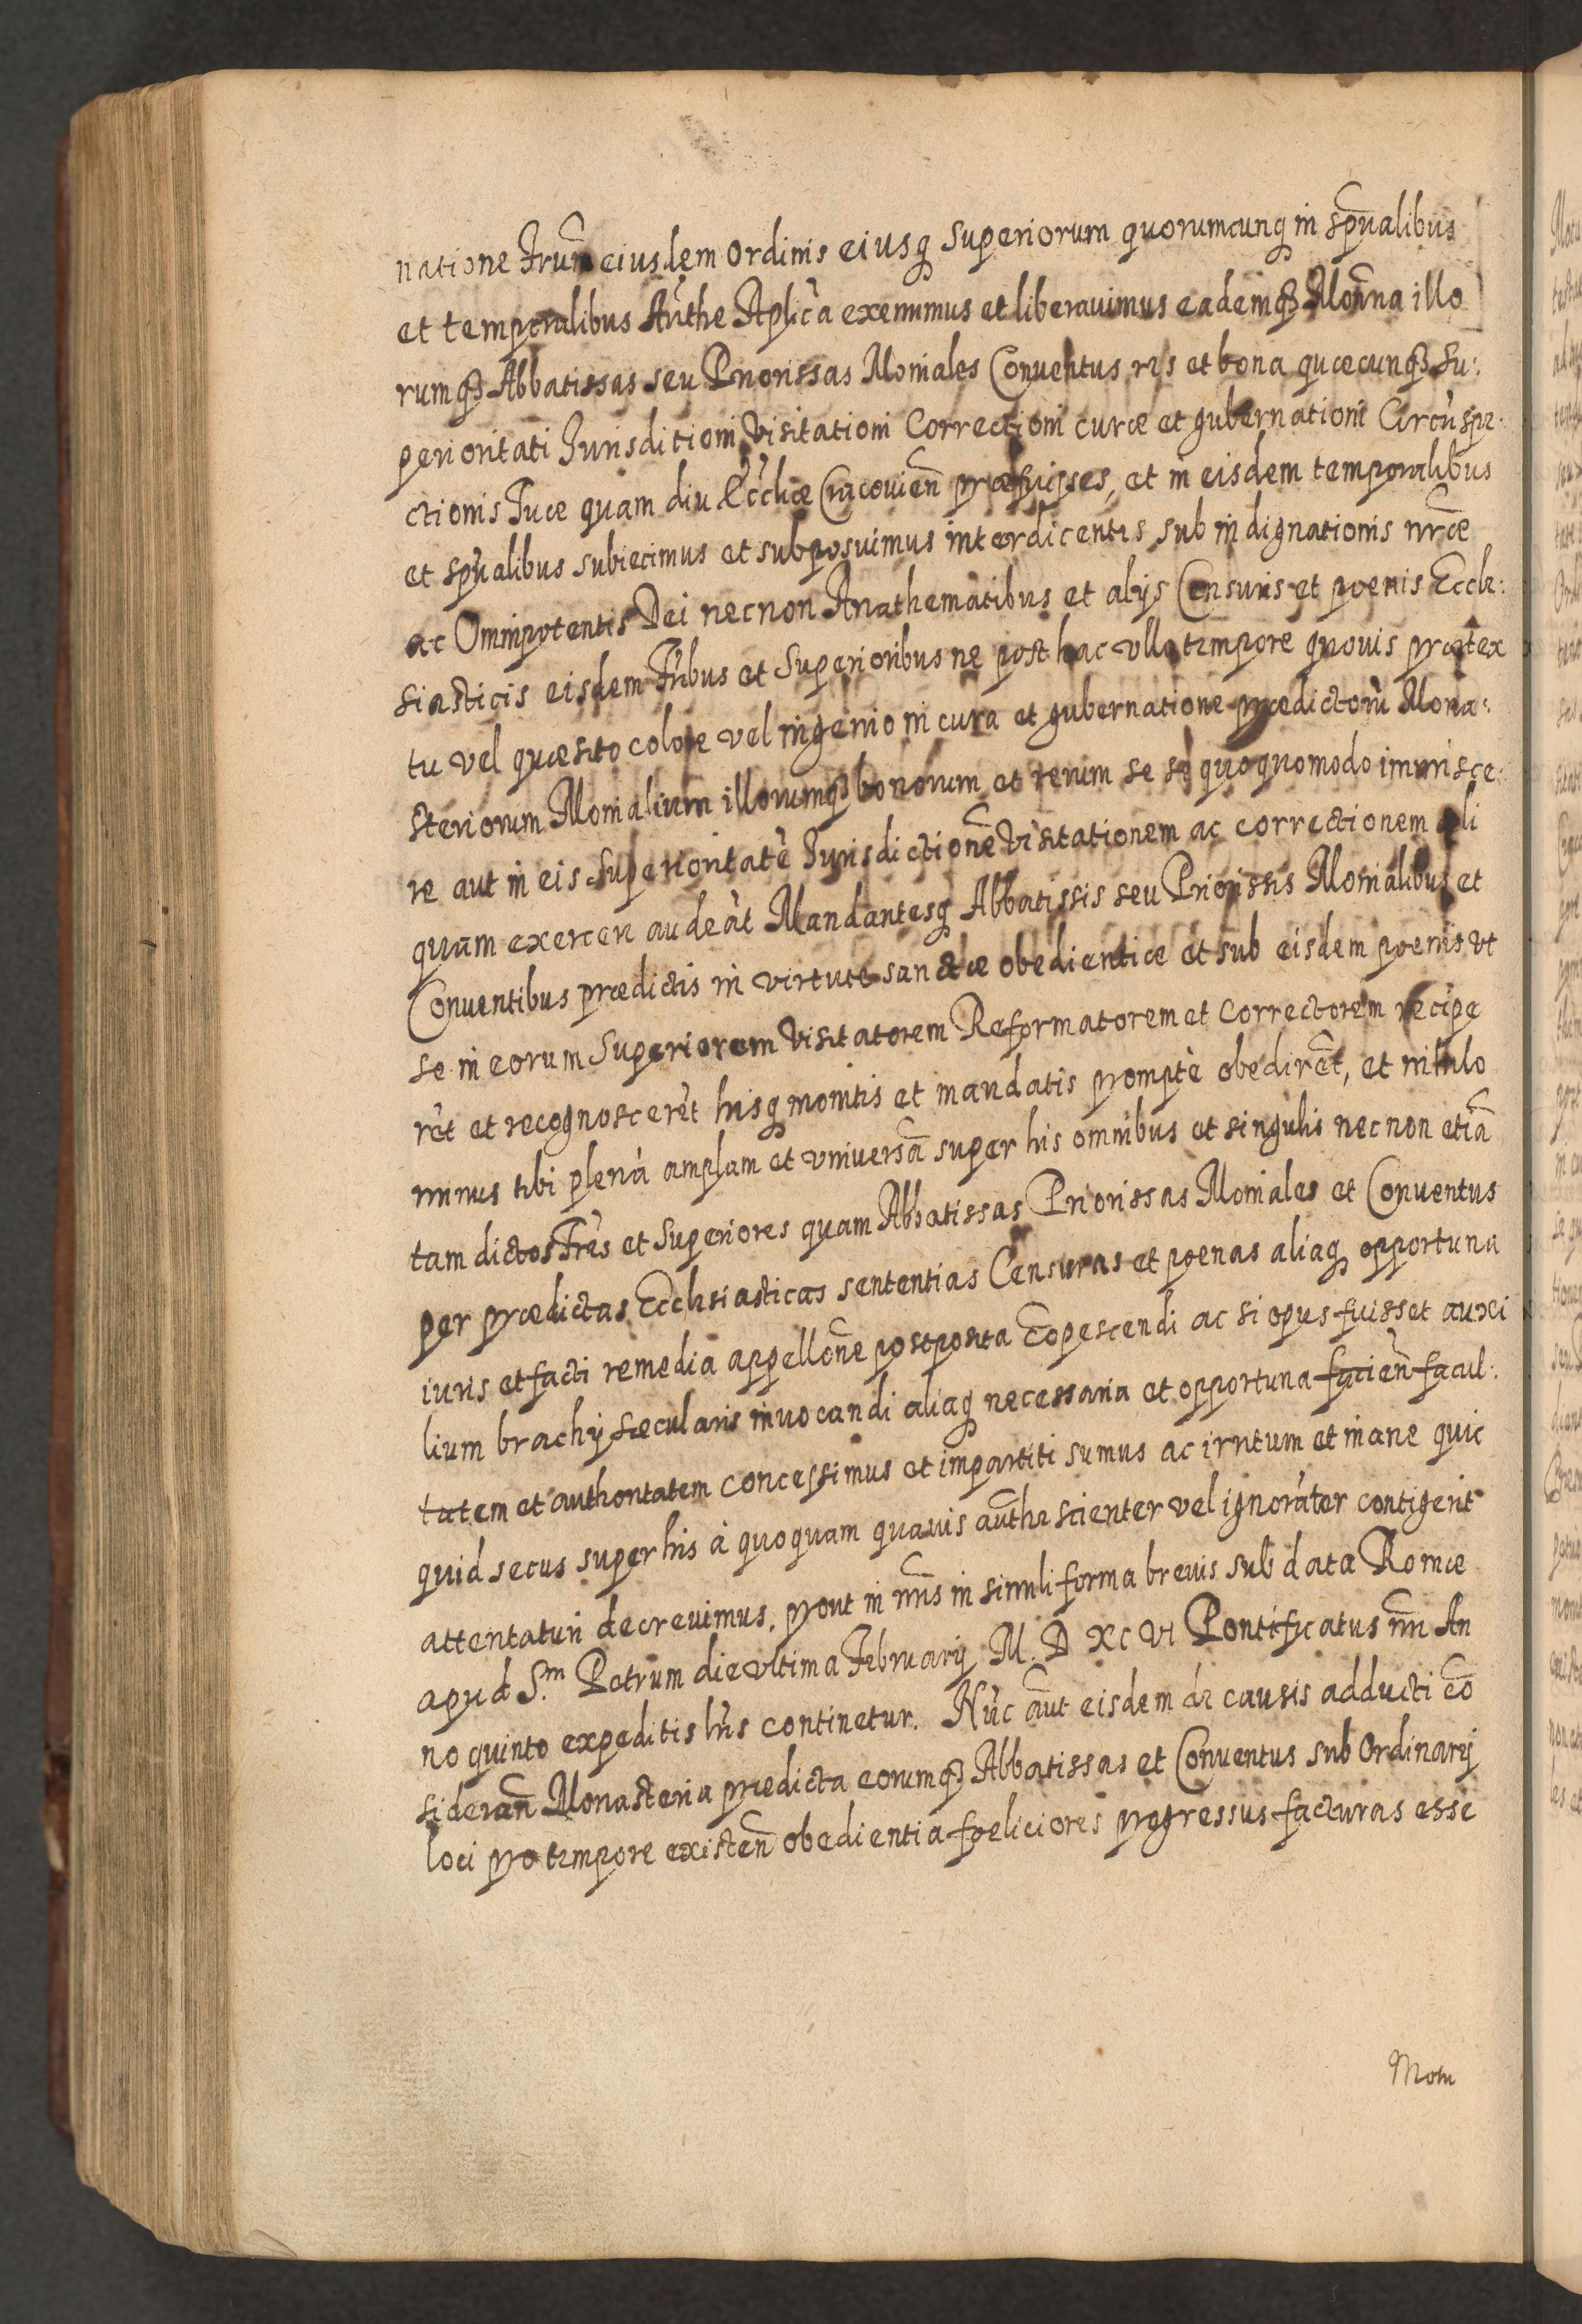 natione Frum̃ eiusdem Ordinis eiusq superiorum quorumcunq in spũalibus
et temporalibus Authe Aplica exemimus et liberauimus eademq Monr̃ia illo
rumq Abbatissas seu Priorissas Moniales Conuentus res et bona quæcunq su:
perioritati Iurisditioni Visitationi Correctioni curæ et gubernationi Circũspe:
ctionis Tuæ quam diu Eccliæ Cracouien̄ præfuisses, et in eisdem temporalibus
et spũalibus subiecimus et subposuimus interdicentes sub indignationis nr̃æ
ac Omnipotentis Dei necnon Anathematibus et alijs Censuris et poenis Eccle:
siasticis eisdem Fr̃ibus et Superioribus ne post hac vllo tempore quouis prætex
tu vel quæsito colore vel ingenio in cura et gubernatione prædictorũ Mona:
steriorum Monialium illorumq bonorum et rerum se se quoquomodo immisce:
re aut in eis Superioritatẽ Iurisdictionẽ Visitationem ac correctionem ali
quam exercere audeãt Mandantesq Abbatissis seu Priorissis Monialibus et
Conuentibus prædictis in virtute sanctæ obedientiæ et sub eisdem poenis vt
se in eorum Superiorem Visitatorem Reformatorem et Correctorem recipe
rẽt et recognoscerẽt hisq monitis et mandatis promptè obedirẽt, et nihilo
minus tibi plenã amplam et vniuersã super his omnibus et singulis necnon etiã
tam dictos Fr̃es et Superiores quam Abbatissas Priorissas Moniales et Conuentus
per prædictas Ecclesiasticas sententias Censuras et poenas aliaq opportuna
iuris et facti remedia appellon̄e postposita Cõpescendi ac si opus fuisset auxi
lium brachij sæcularis inuocandi aliaq necessaria et opportuna facien̄ facul:
tatem et authoritatem concessimus et impartiti sumus ac irritum et inane quic
quid secus super his à quoquam quauis authe scienter vel ignorãter contigerit
attentaturi decreuimus, prout in nr̃is in simili forma breuis sub data Romæ
apud S.m Petrum die vltima Februarij M. D XC VI Pontificatus nr̃i An
no quinto expeditis lr̃is continetur. Nũc aũt eisdem de causis adducti cõ
sideran̄ Monasteria prædicta eorumq Abbatissas et Conuentus sub Ordinarij
loci pro tempore existen̄ obedientia foeliciores progressus facturas esse
Motu